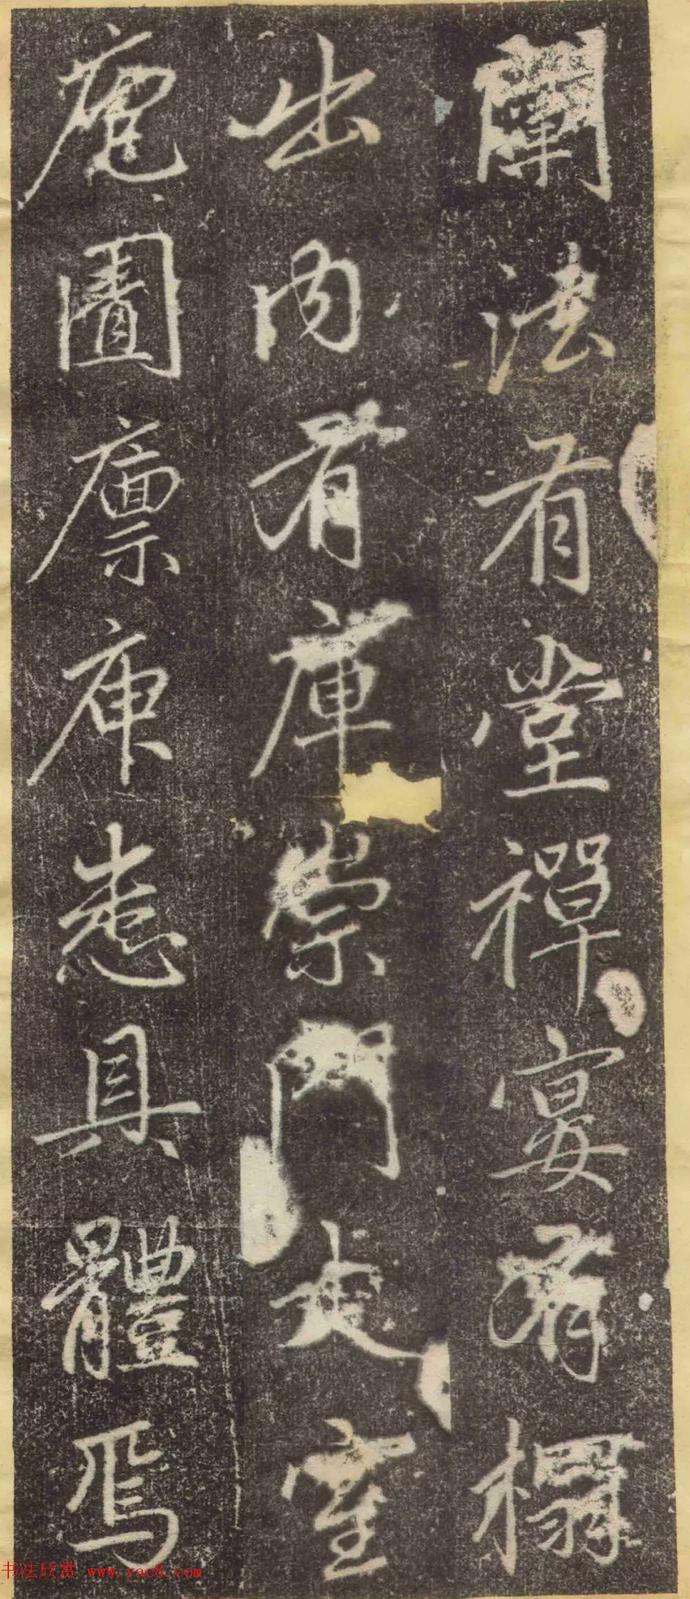 闡法有堂禪宴有榻
出內有庫崇門丈室
庖圊廩庾悉具體焉
书法欣赏 www.yac8.com